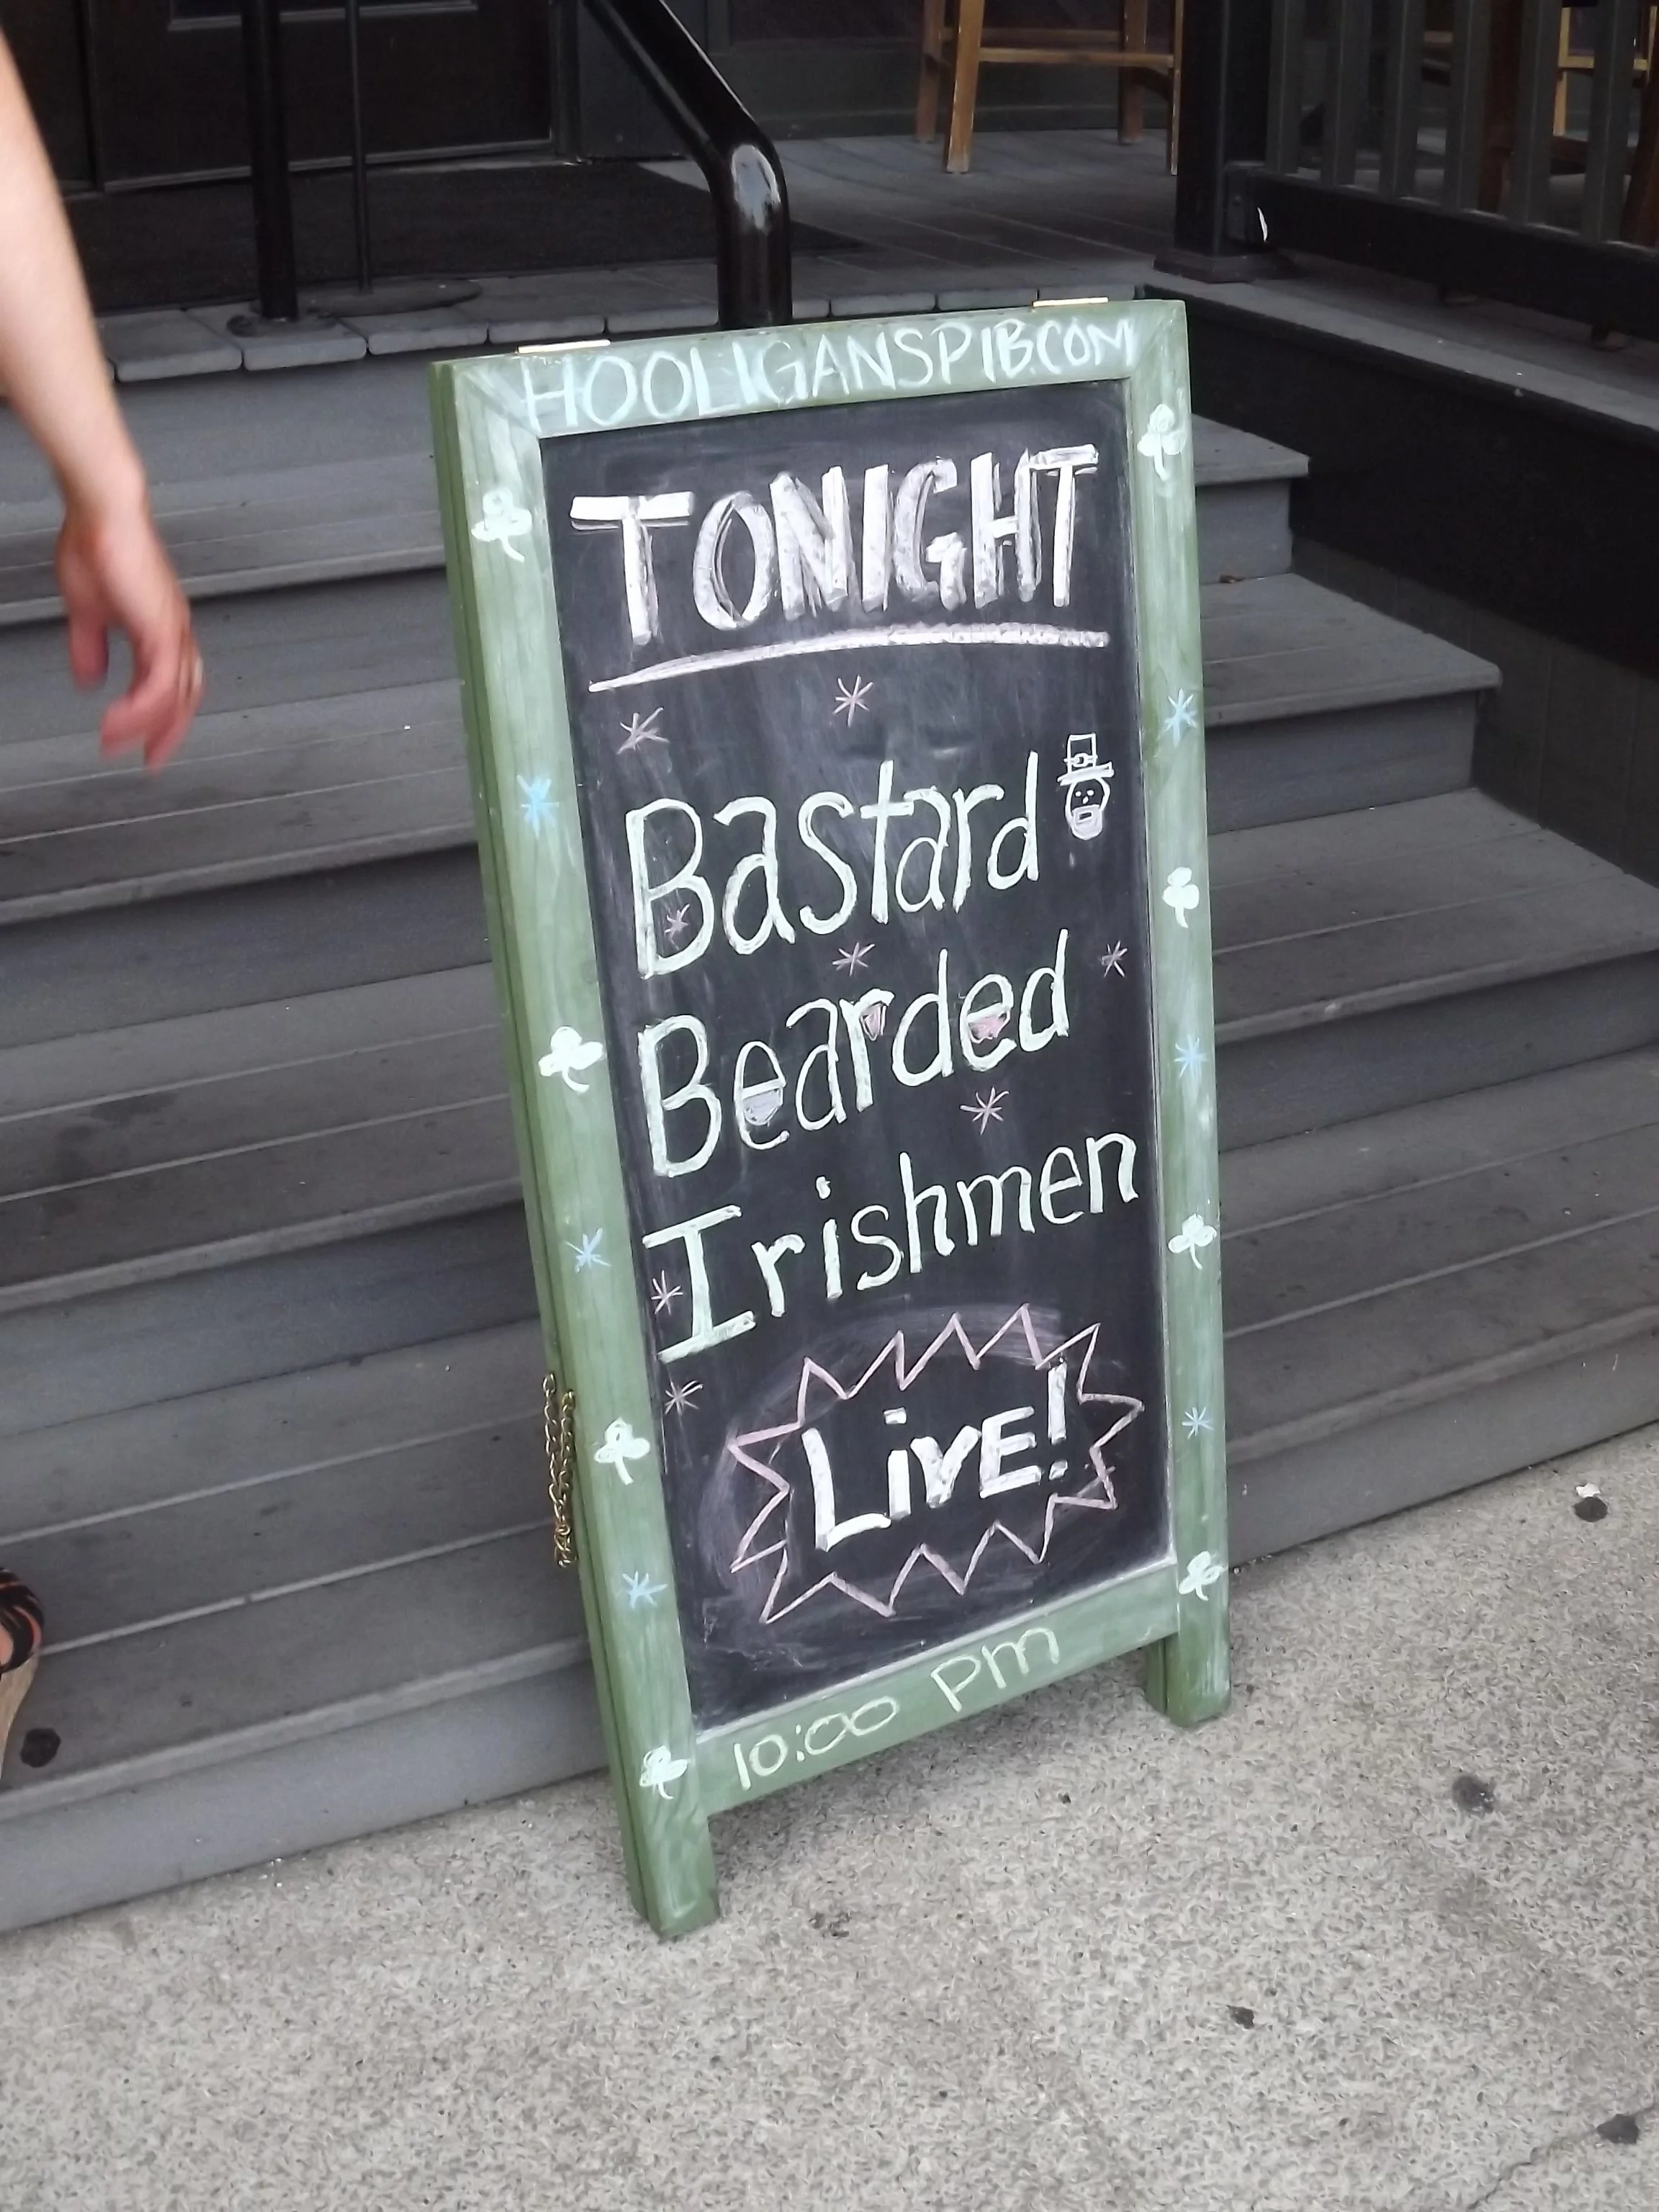 HOOLIGANSPIB.COM
TONIGHT
Bastard
Bearded
Irishmen
LiVE!
10:00 PM